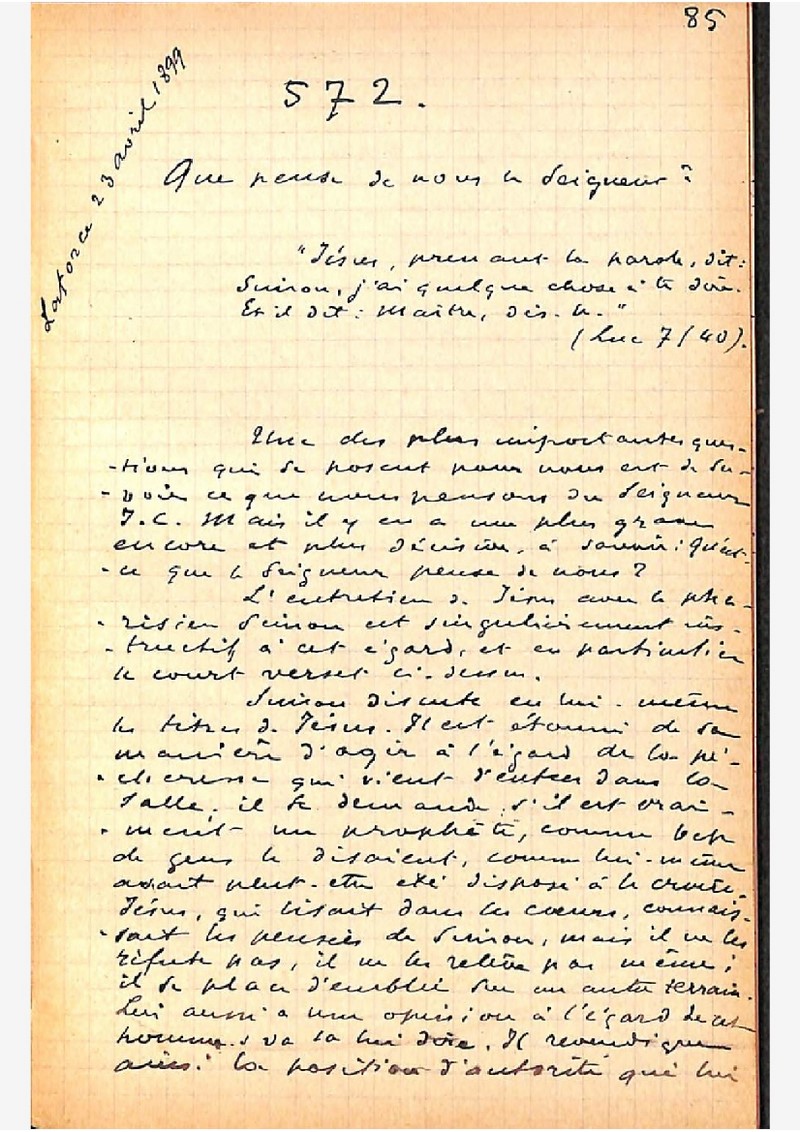 85
Laforce 23 avril 1899
572.
Que pense de nous le Seigneur ?
"Jésus, prenant la parole, dit :
Simon, j'ai quelque chose à te dire.
Et il dit : Maître, dis-le."
(Luc 7/40).
Une des plus importantes ques-
-tions qui se posent pour nous est de sa-
-voir ce que nous pensons du Seigneur
J.C. Mais il y en a une plus grave
encore et plus décisive, à savoir : Qu'est-
-ce que le Seigneur pense de nous ?
L'entretien de Jésus avec le pha-
-risien Simon est singulièrement ins-
-tructif à cet égard, et en particulier
le court verset ci-dessus.
Simon discute en lui-même
les titres de Jésus. Il est étonné de sa
manière d'agir à l'égard de la pé-
-cheresse qui vient d'entrer dans la
salle, il se demande s'il est vrai-
-ment un prophète, comme bcp
de gens le disaient, comme lui-même
avait peut-etre été disposé à le croire.
Jésus, qui lisait dans les cœurs, connais-
-sait les pensées de Simon, mais il ne les
réfute pas, il ne les relève pas même ;
il se place d'emblée sur un autre terrain.
Lui aussi a une opinion à l'égard de cet
homme & va la lui dire. Il revendique
ainsi la position d'autorité que lui